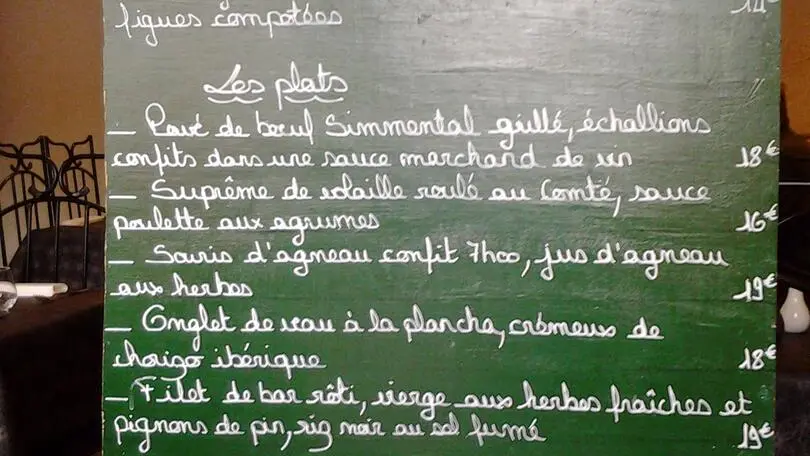 figues compotées 14€
Les plats
- Pavé de bœuf Simmental grillé, échallions
confits dans une sauce marchand de vin 18€
- Suprême de volaille roulé au Comté, sauce
poulette aux agrumes 16€
- Souris d'agneau confit 7h00, jus d'agneau
aux herbes 19€
- Onglet de veau à la plancha, crémeux de
chorizo ibérique 18€
- Filet de bar rôti, vierge aux herbes fraîches et
pignons de pin, riz noir au sel fumé 19€